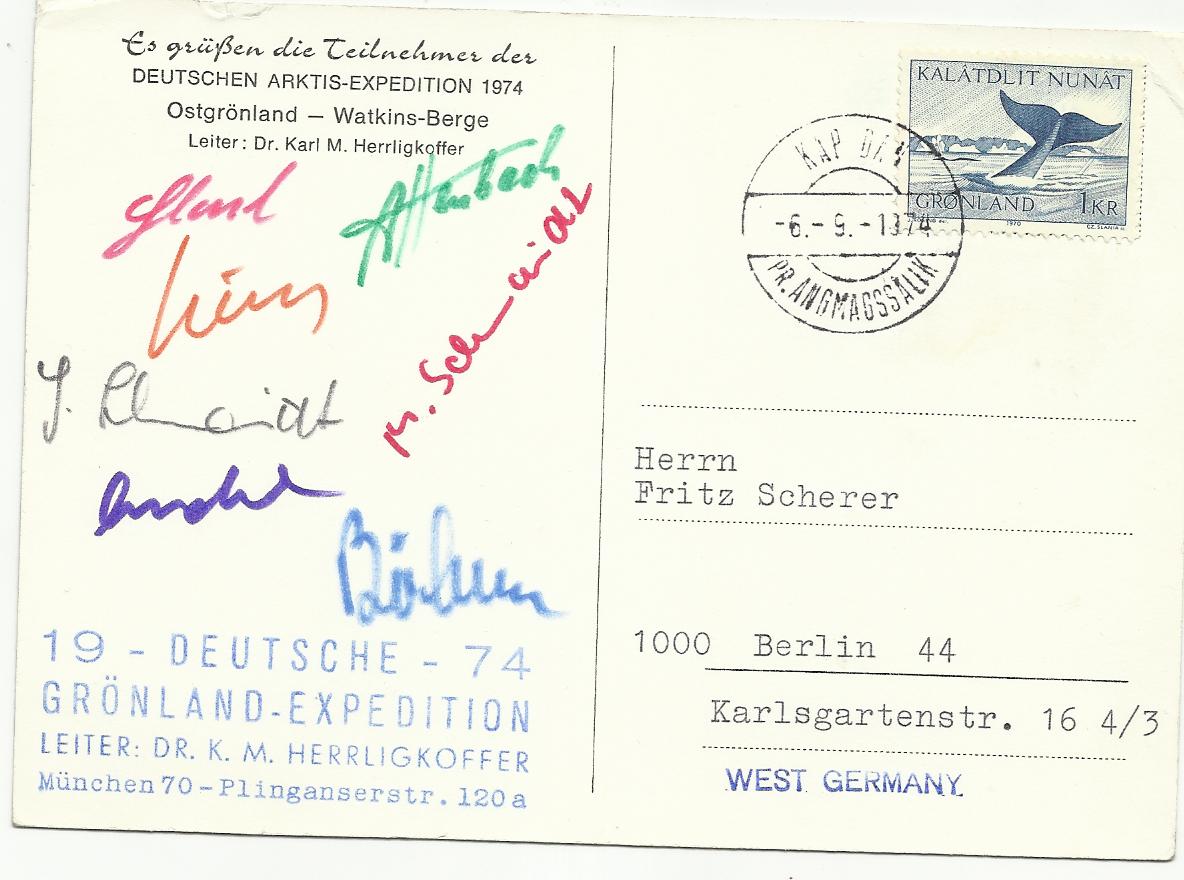 Es grüßen die Teilnehmer der
DEUTSCHEN ARKTIS-EXPEDITION 1974
Ostgrönland — Watkins-Berge
Leiter: Dr. Karl M. Herrligkoffer
M. Schmidt
J. Schmidt
19 - DEUTSCHE - 74
GRÖNLAND-EXPEDITION
LEITER: DR. K. M. HERRLIGKOFFER
München 70 - Plinganserstr. 120a
KALÂTDLIT NUNÂT
GRØNLAND 1KR
1970 CZ. SLANIA
KAP DAN
-6.-9.-1974
PR. ANGMAGSSALIK
Herrn
Fritz Scherer
1000 Berlin 44
Karlsgartenstr. 16 4/3
WEST GERMANY